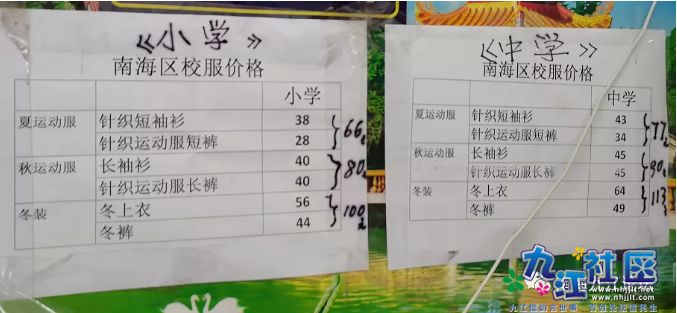 《小学》
南海区校服价格
小学
夏运动服 针织短袖衫 38
针织运动服短裤 28
66元
秋运动服 长袖衫 40
针织运动服长裤 40
80元
冬装 冬上衣 56
冬裤 44
100元
《中学》
南海区校服价格
中学
夏运动服 针织短袖衫 43
针织运动服短裤 34
77元
秋运动服 长袖衫 45
针织运动服长裤 45
90元
冬装 冬上衣 64
冬裤 49
113元
九江社区
www.nhjjlt.com